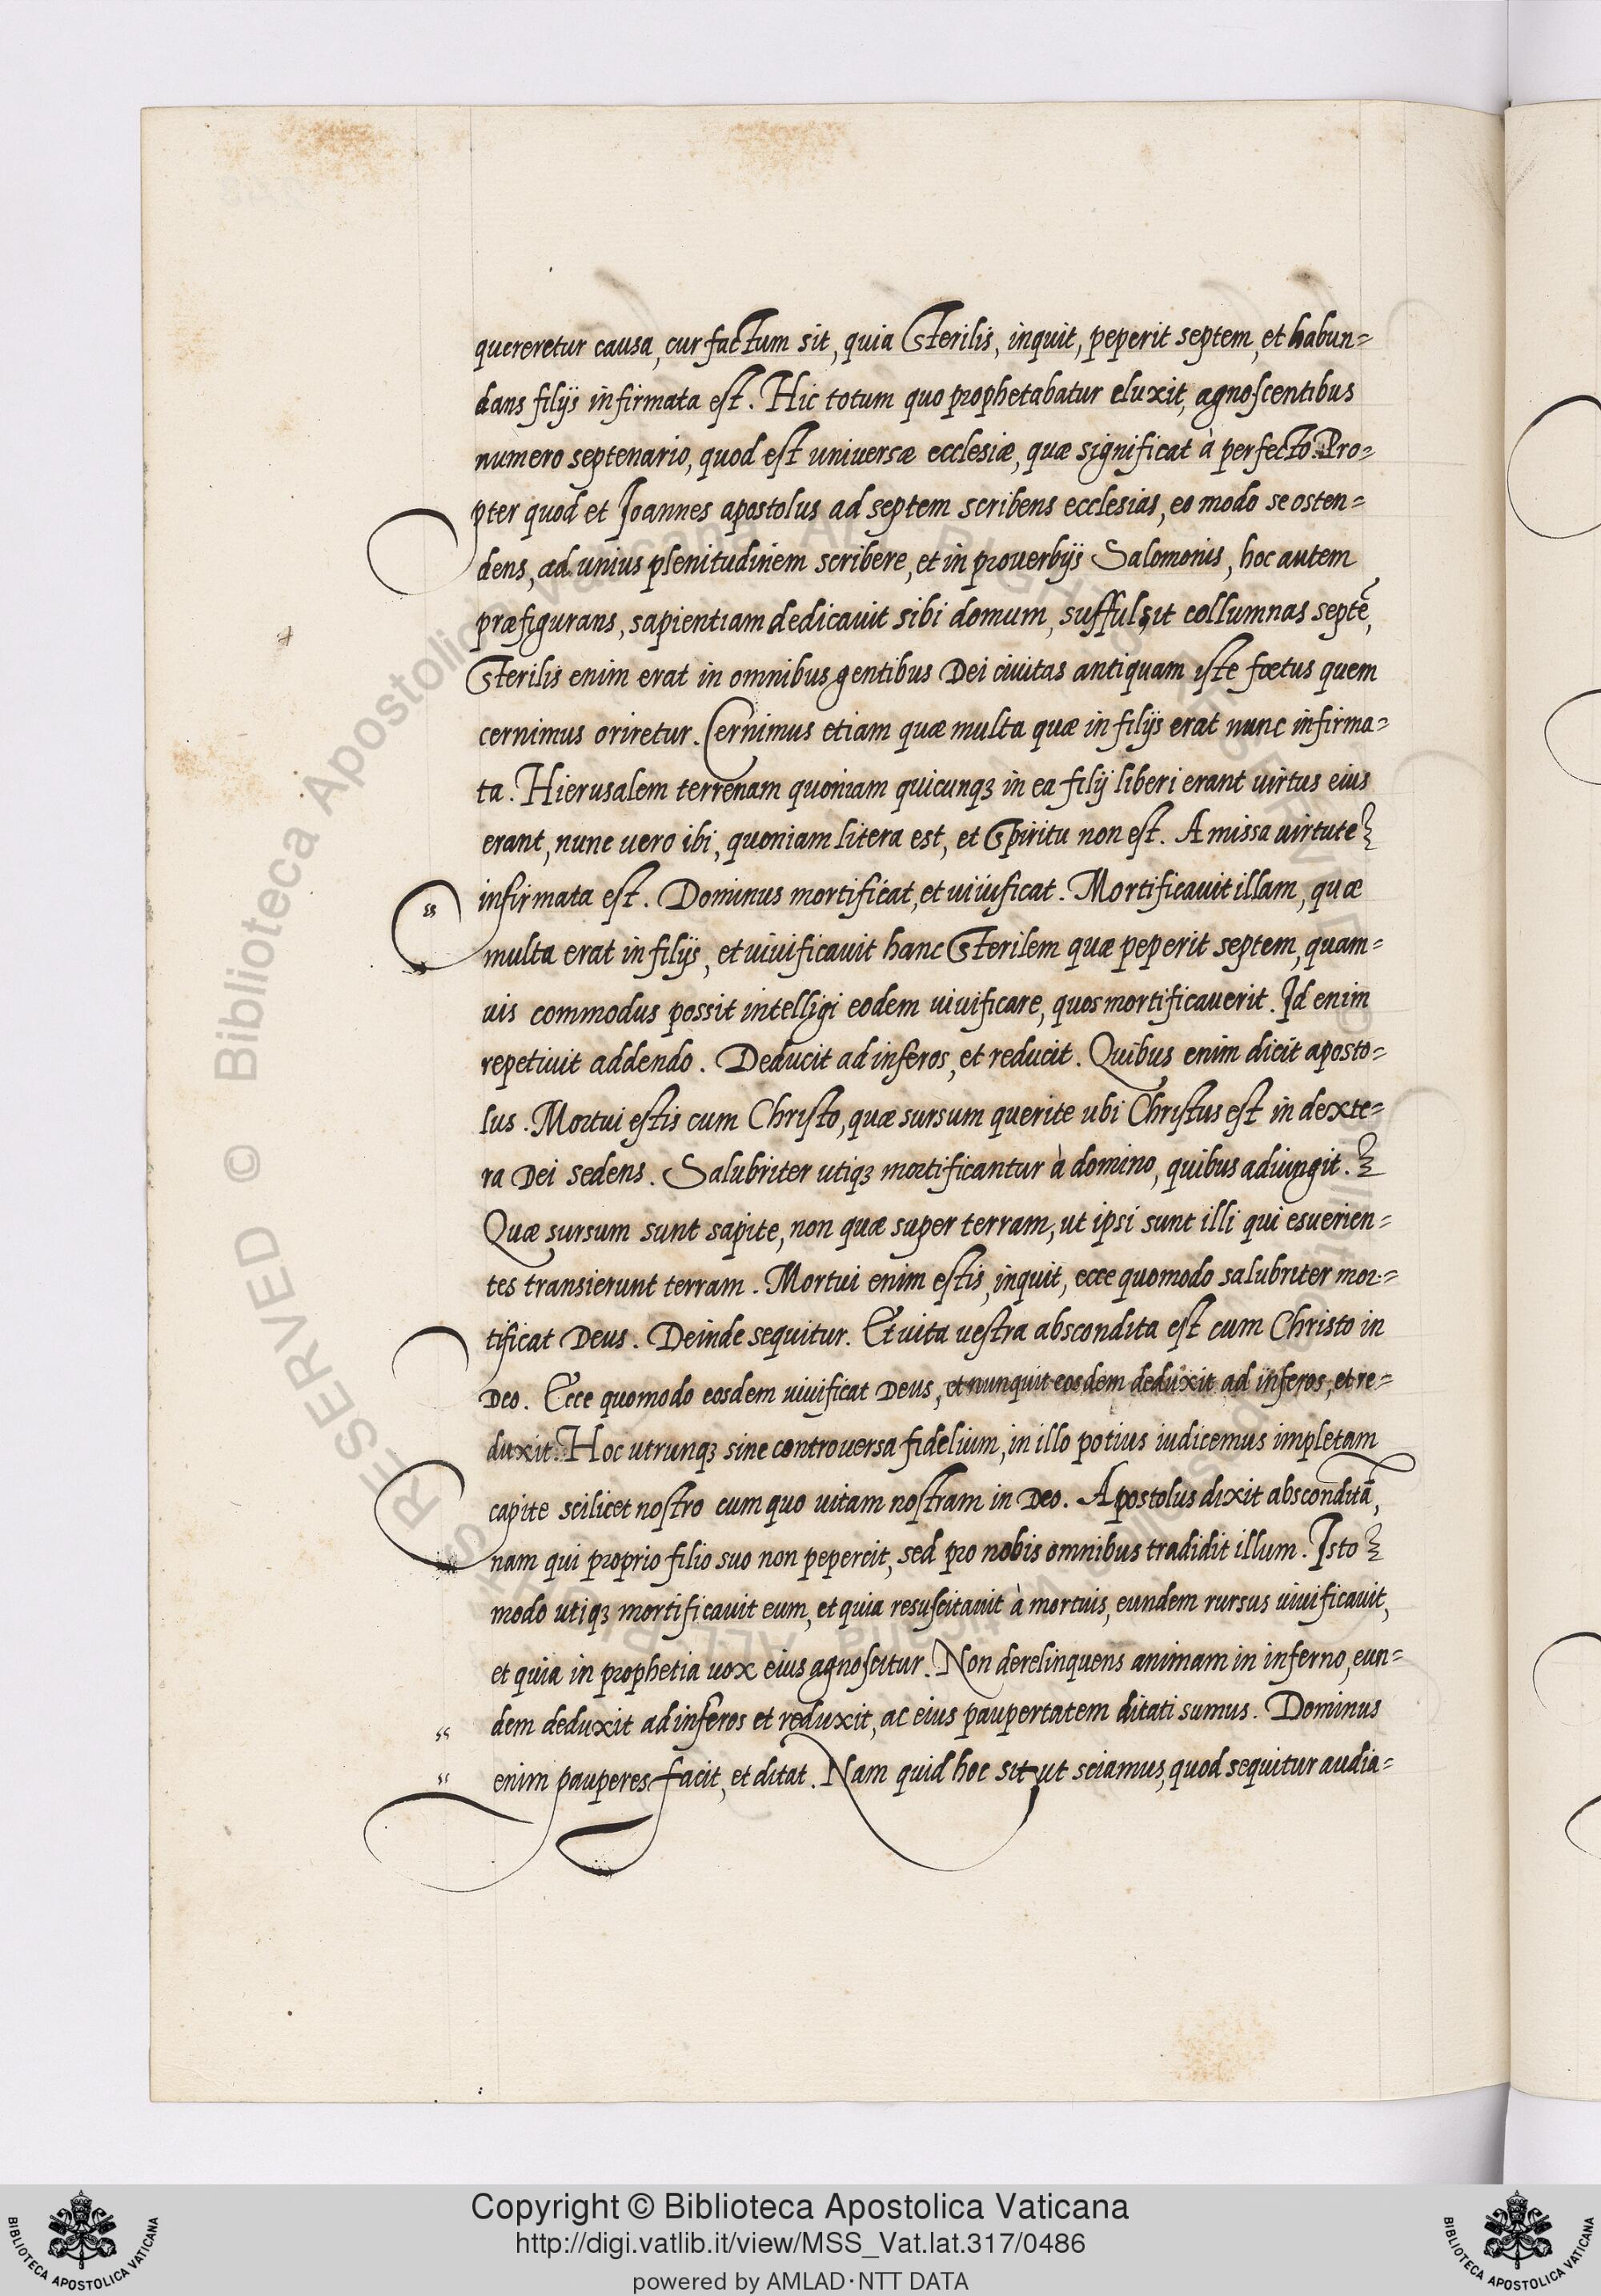 quereretur causa, cur factum sit, quia Sterilis, inquit, peperit septem, et habun=
dans filijs infirmata est. Hic totum quo prophetabatur eluxit, agnoscentibus
numero septenario, quod est universæ ecclesiæ, quæ significat à perfecto. Pro=
pter quod et Joannes apostolus ad septem scribens ecclesias, eo modo se osten=
dens, ad unius plenitudinem scribere, et in proverbijs Salomonis, hoc autem
præfigurans, sapientiam dedicavit sibi domum, suffulsit collumnas septẽ,
Sterilis enim erat in omnibus gentibus Dei civitas antiquam iste fœtus quem
cernimus oriretur. Cernimus etiam quæ multa quæ in filijs erat nunc infirma=
ta. Hierusalem terrenam quoniam quicunqꝫ in ea filij liberi erant virtus eius
erant, nunc vero ibi, quoniam litera est, et Spiritu non est. Amissa virtute
infirmata est. Dominus mortificat, et vivificat. Mortificavit illam, quæ
multa erat in filijs, et vivificavit hanc Sterilem quæ peperit septem, quam=
vis commodus possit intelligi eodem vivificare, quos mortificaverit. Id enim
repetivit addendo. Deducit ad inferos, et reducit. Quibus enim dicit aposto=
lus. Mortui estis cum Christo, quæ sursum querite ubi Christus est in dexte=
ra Dei sedens. Salubriter utiqꝫ mortificantur à domino, quibus adiungit.
Quæ sursum sunt sapite, non quæ super terram, ut ipsi sunt illi qui esuerien=
tes transierunt terram. Mortui enim estis, inquit, ecce quomodo salubriter mor=
tificat Deus. Deinde sequitur. Et vita vestra abscondita est cum Christo in
Deo. Ecce quomodo eosdem vivificat Deus, et nunquit eosdem deduxit ad inferos, et re=
duxit. Hoc utrunqꝫ sine controversa fidelium, in illo potius iudicemus impletam
capite scilicet nostro cum quo vitam nostram in Deo. Apostolus dixit absconditã,
nam qui proprio filio suo non pepercit, sed pro nobis omnibus tradidit illum. Isto
modo utiqꝫ mortificavit eum, et quia resuscitavit à mortuis, eundem rursus vivificavit,
et quia in prophetia vox eius agnoscitur. Non derelinquens animam in inferno, eun=
dem deduxit ad inferos et reduxit, ac eius paupertatem ditati sumus. Dominus
enim pauperes facit, et ditat. Nam quid hoc sit ut sciamus, quod sequitur audia=
Copyright © Biblioteca Apostolica Vaticana
http://digi.vatlib.it/view/MSS_Vat.lat.317/0486
powered by AMLAD·NTT DATA